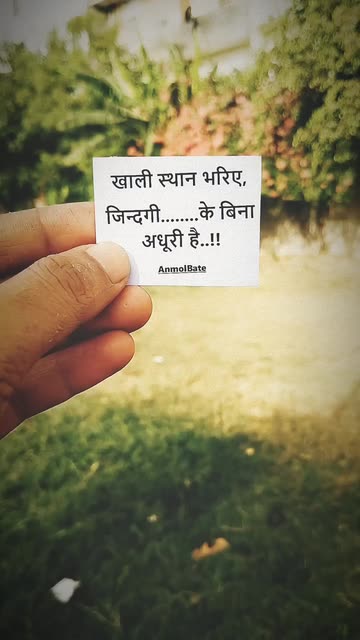 खाली स्थान भरिए,
जिन्दगी........के बिना
अधूरी है..!!
AnmolBate